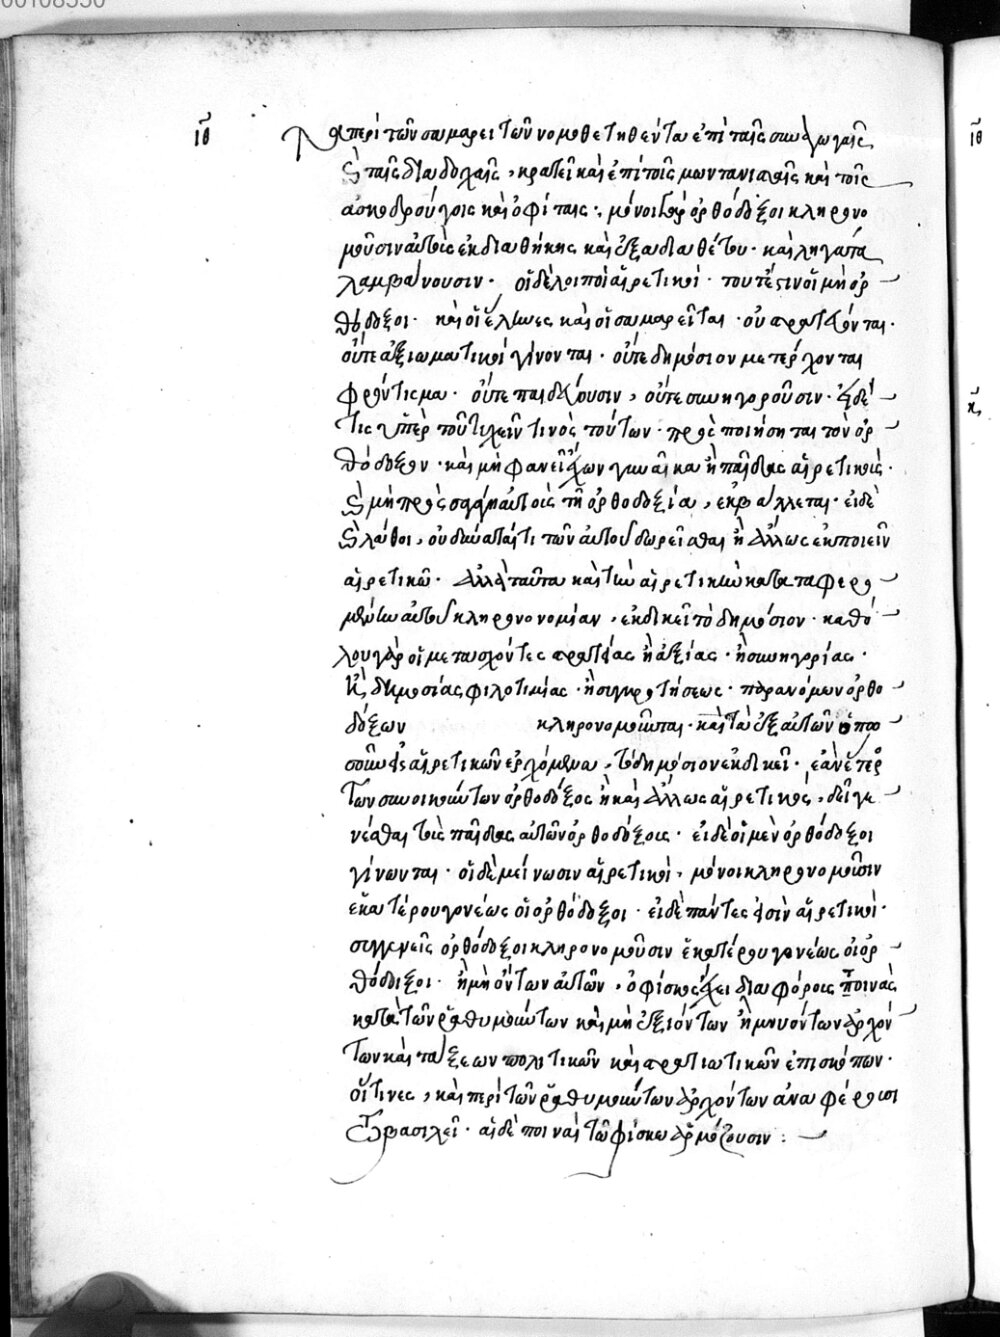 00108550
ιθ
Τὰ περὶ τῶν σαμαρειτῶν νομοθετηθέντα ἐπὶ ταῖς συναγωγαῖς
καὶ ταῖς διαδοχαῖς, κρατεῖ καὶ ἐπὶ τοῖς μοντανισταῖς καὶ τοῖς
ἀσκοδρούγοις καὶ ὀφίταις· μόνοι γὰρ ὀρθόδοξοι κληρονο
μοῦσιν αὐτοὺς ἐκ διαθήκης καὶ ἐξ ἀδιαθέτου· καὶ ληγάτα
λαμβάνουσιν· οἱ δὲ λοιποὶ αἱρετικοὶ· τουτέστιν οἱ μὴ ὀρ
θόδοξοι· καὶ οἱ ἕλληνες καὶ οἱ σαμαρεῖται· οὐ στρατεύονται·
οὔτε ἀξιωματικοὶ γίνονται· οὔτε δημόσιον μετέρχονται
φρόντισμα· οὔτε παιδεύουσιν, οὔτε συνηγοροῦσιν· εἰ δέ
τις ὑπὲρ τοῦ τυχεῖν τινὸς τούτων· προσποιήσηται τὸν ὀρ
θόδοξον· καὶ μὴ φανείη ἔχων γυναῖκα ἢ παῖδας αἱρετικοὺς·
καὶ μὴ προσαγάγῃ αὐτοὺς τῇ ὀρθοδοξίᾳ, ἐκβάλλεται· εἰ δὲ
καὶ λάθοι, οὐ δύναταί τι τῶν αὐτοῦ δωρεῖσθαι ἢ ἄλλως ἐκποιεῖν
αἱρετικῷ· ἀλλὰ ταῦτα καὶ τὴν αἱρετικῶν καταφερο
μένην αὐτοῦ κληρονομίαν, ἐκδικεῖ τὸ δημόσιον· καθό
λου γὰρ οἱ μετασχόντες στρατείας ἢ ἀξίας· ἢ συνηγορίας·
ἢ δημοσίας φιλοτιμίας· ἢ συγκροτήσεως· παρὰ μόνων ὀρθο
δόξων κληρονομοῦνται· καὶ τὰ ἐξ αὐτῶν ὁπω
σοῦν εἰς αἱρετικῶν ἐρχόμενα, τὸ δημόσιον ἐκδικεῖ· ἐὰν ἕτερος
τῶν συνοικούντων ὀρθόδοξος ᾖ καὶ ἄλλως αἱρετικός, δεῖ γε
νέσθαι τοὺς παῖδας αὐτῶν ὀρθοδόξους· εἰ δὲ οἱ μὲν ὀρθόδοξοι
γίνωνται· οἱ δὲ μείνωσιν αἱρετικοὶ, μόνοι κληρονομοῦσιν
ἑκατέρου γονέως οἱ ὀρθόδοξοι· εἰ δὲ πάντες εἰσὶν αἱρετικοὶ·
συγγενεῖς ὀρθόδοξοι κληρονομοῦσιν ἑκατέρου γονέως οἱ ὀρ
θόδοξοι· ἢ μὴ ὄντων αὐτῶν, ὁ φίσκος ἔχει διαφόρους ποινὰς
κατὰ τῶν ῥαθυμούντων καὶ μὴ ἐξιόντων ἢ μηνυόντων ἀρχόν
των καὶ τάξεων πολιτικῶν καὶ στρατιωτικῶν ἐπισκόπων·
οἵτινες, καὶ περὶ τῶν ῥαθυμούντων ἀρχόντων ἀναφέρουσι
τῷ βασιλεῖ· αἱ δὲ ποιναὶ τῷ φίσκῳ ἁρμόζουσιν :
ιθ
κ